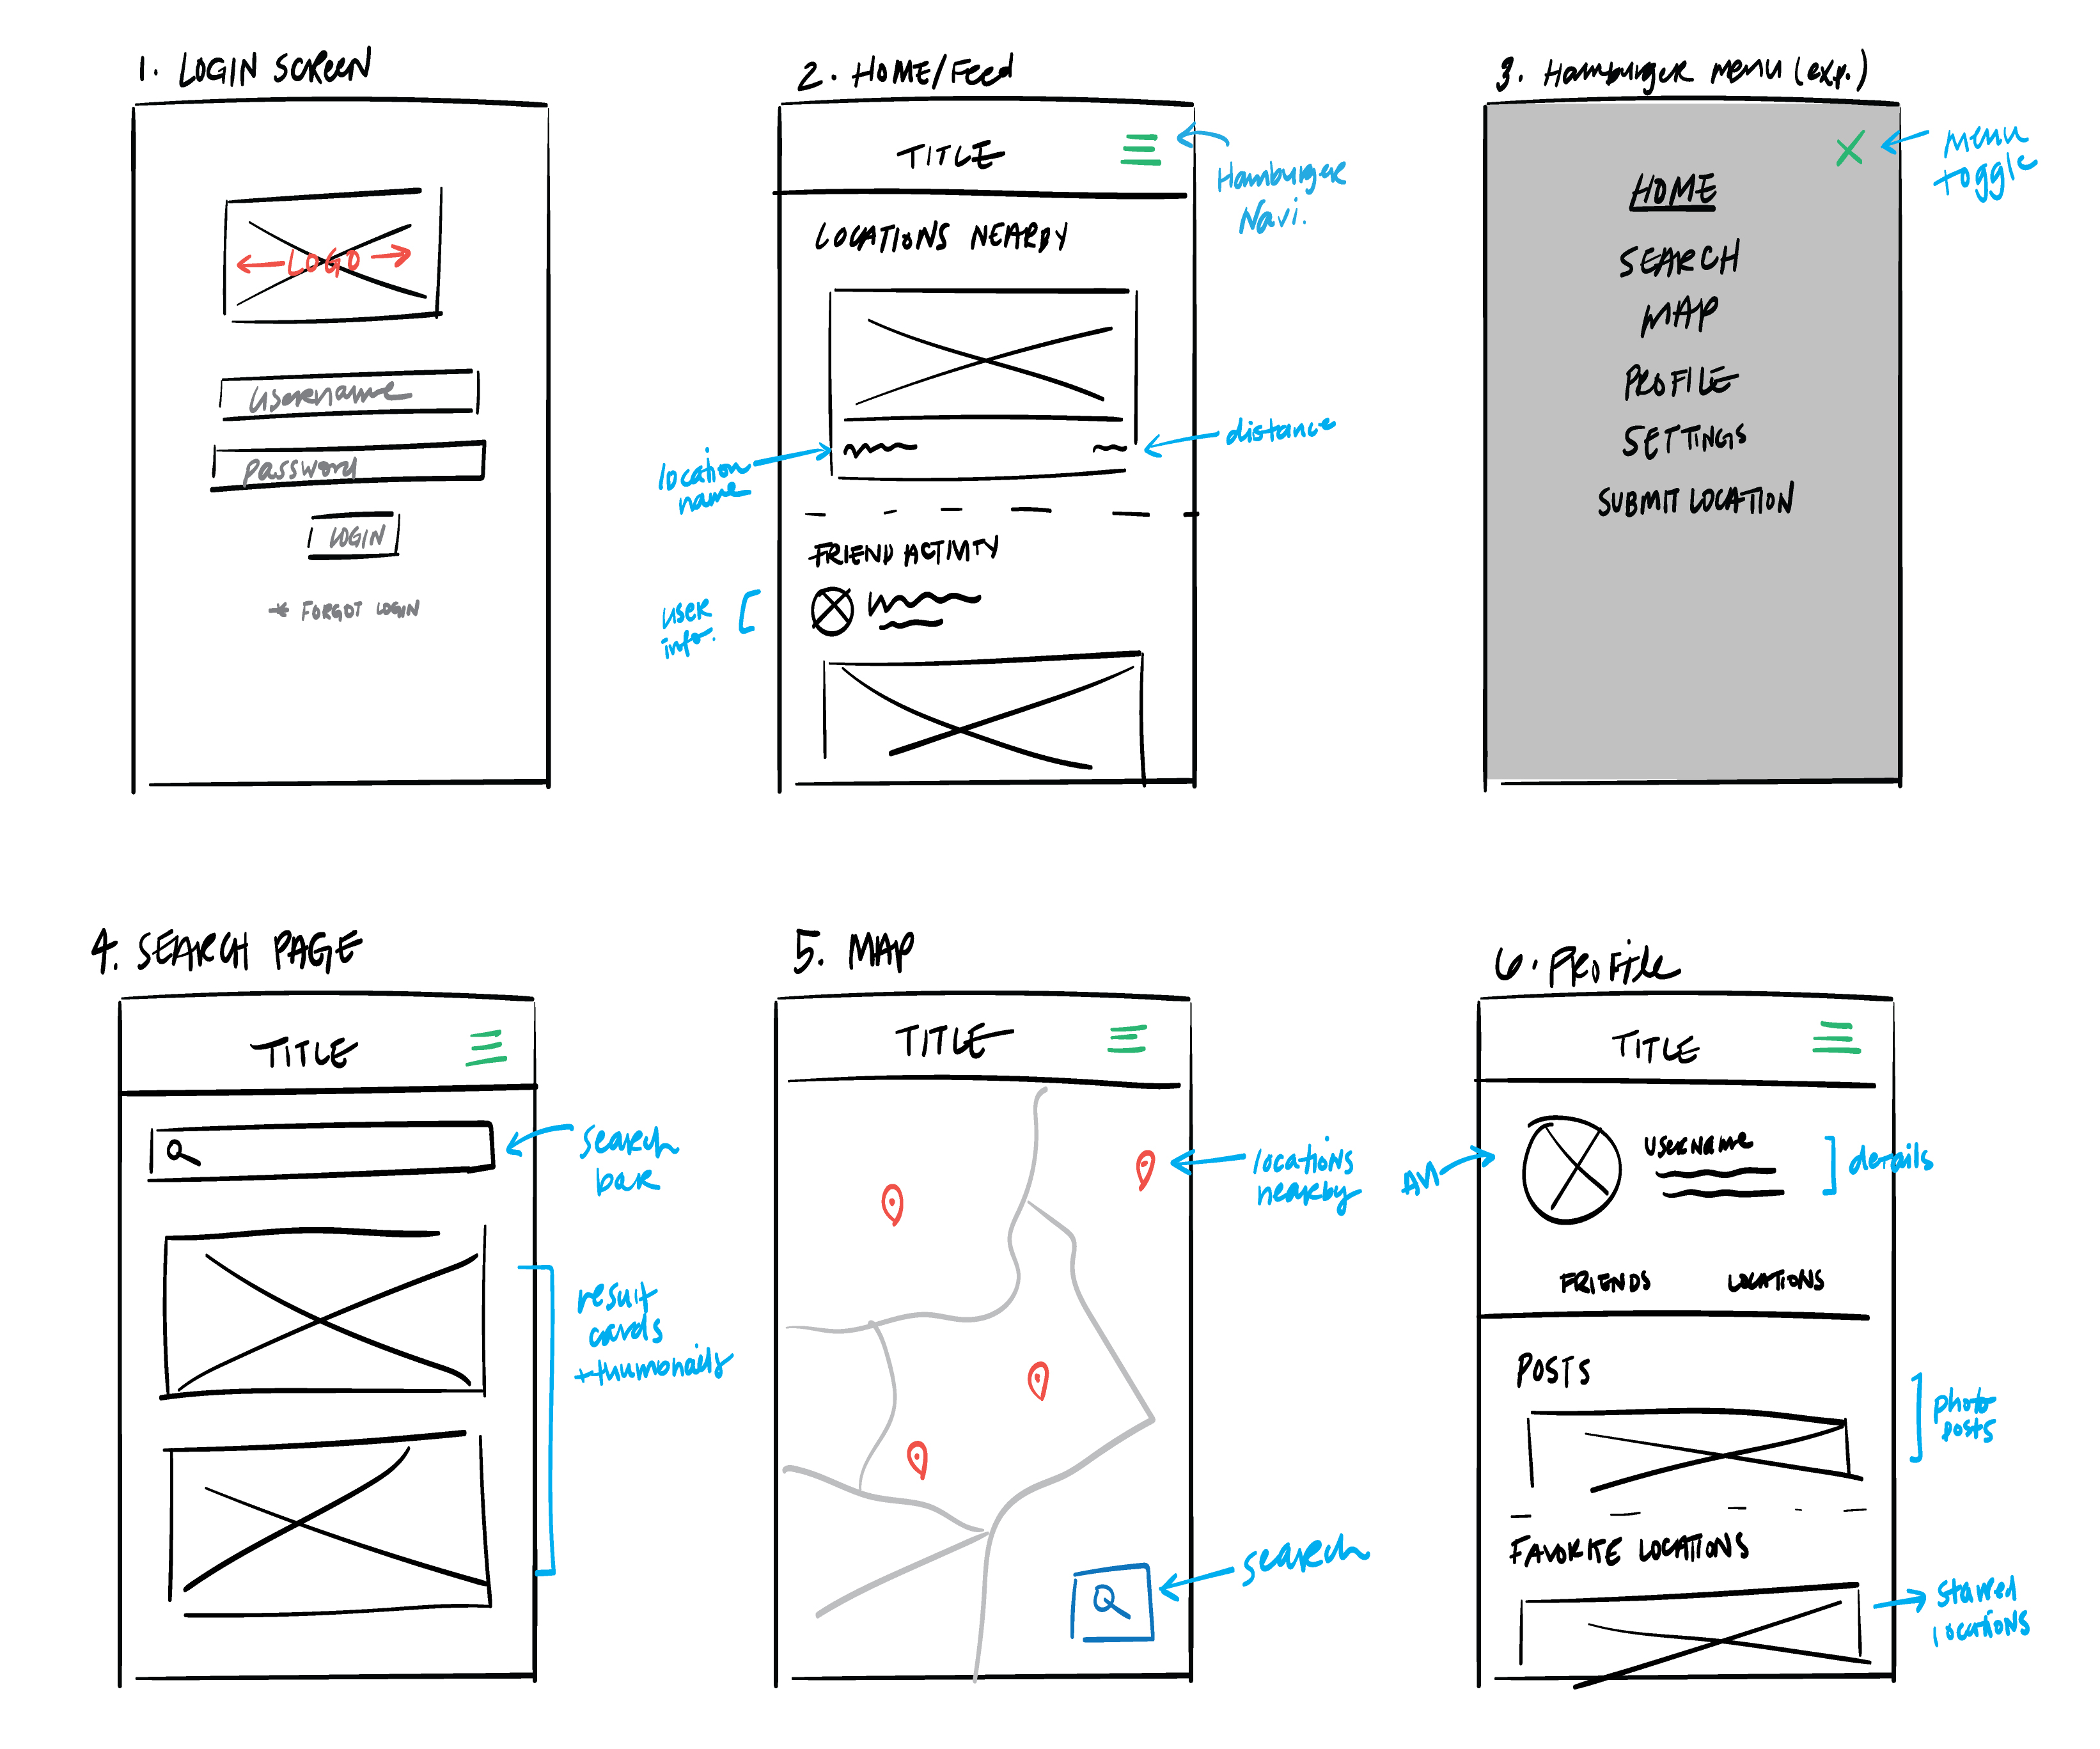 1. LOGIN SCREEN
← LOGO →
username
password
LOGIN
→ FORGOT LOGIN
2. HOME/Feed
TITLE
Hamburger
Navi.
LOCATIONS NEARBY
location
name
distance
FRIEND ACTIVITY
user
info.
3. Hamburger menu (exp.)
menu
toggle
HOME
SEARCH
MAP
PROFILE
SETTINGS
SUBMIT LOCATION
4. SEARCH PAGE
TITLE
search
bar
result
cards
+thumbnails
5. MAP
TITLE
locations
nearby
search
6. PROFile
TITLE
AVI
USERNAME
details
FRIENDS LOCATIONS
POSTS
photo
posts
FAVORITE LOCATIONS
starred
locations